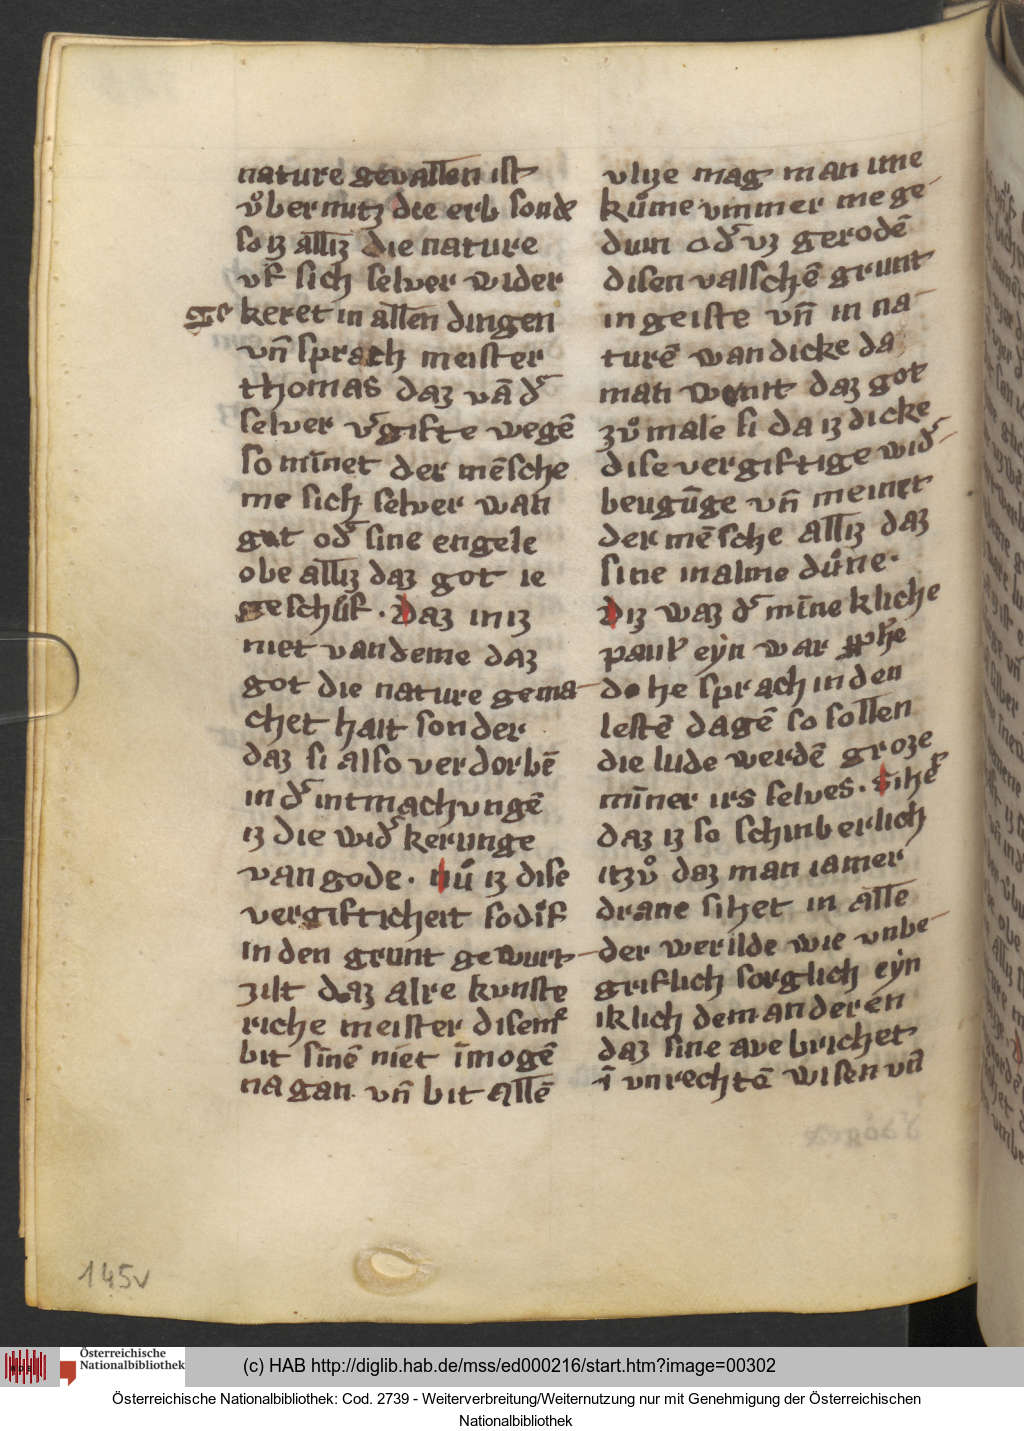 nature geuallen ist
vͦber mitz die erb sonde
so iz alliz die nature
vf sich seluer wider
ge keret in allen dingen
vn̄ sprach meister
thomas daz vā d᷑
seluer v᷑gifte wegē
so mīnet der mēsche
me sich seluer wan
got od᷑ sine engele
obe alliz daz got ie
geschůf · Daz in iz
niet van deme daz
got die nature gema
chet hait sonder
daz si also verdorbē
in d᷑ intmachungē
iz die wid᷑kerunge
van gode · Nů iz dise
vergifticheit so dīf
in den grunt gewurt
zilt daz alre kunste
riche meister disem᷑
bit sīnē niet īmogē
na gan vn̄ bit allē
vlize mag man ime
kůme vmmer me ge
dun od᷑ vz gerodē
disen valschē grunt
in geiste vn̄ in na
turē wan dicke da
man wenit daz got
zvͦ male si da iz dicke
dise vergiftige wid᷑
beugūge vn̄ meinet
der mēsche alliz daz
sine in alme důne ·
Diz waz d᷑ mīnekliche
paul᷑ eyn war
do he sprach in den
lestē dagē so sollen
die lude werdē groze
mīner irs selues · Sihe᷑
daz iz so schinberlich
itzvͦ daz man iamer
drane sihet in alle
der werilde wie vnbe
griflich sorglich eyn
iklich dem anderen
daz sine aue brichet
ī vnrechtē wisen vn̄
145v
Österreichische
Nationalbibliothek
(c) HAB http://diglib.hab.de/mss/ed000216/start.htm?image=00302
Österreichische Nationalbibliothek: Cod. 2739 - Weiterverbreitung/Weiternutzung nur mit Genehmigung der Österreichischen
Nationalbibliothek